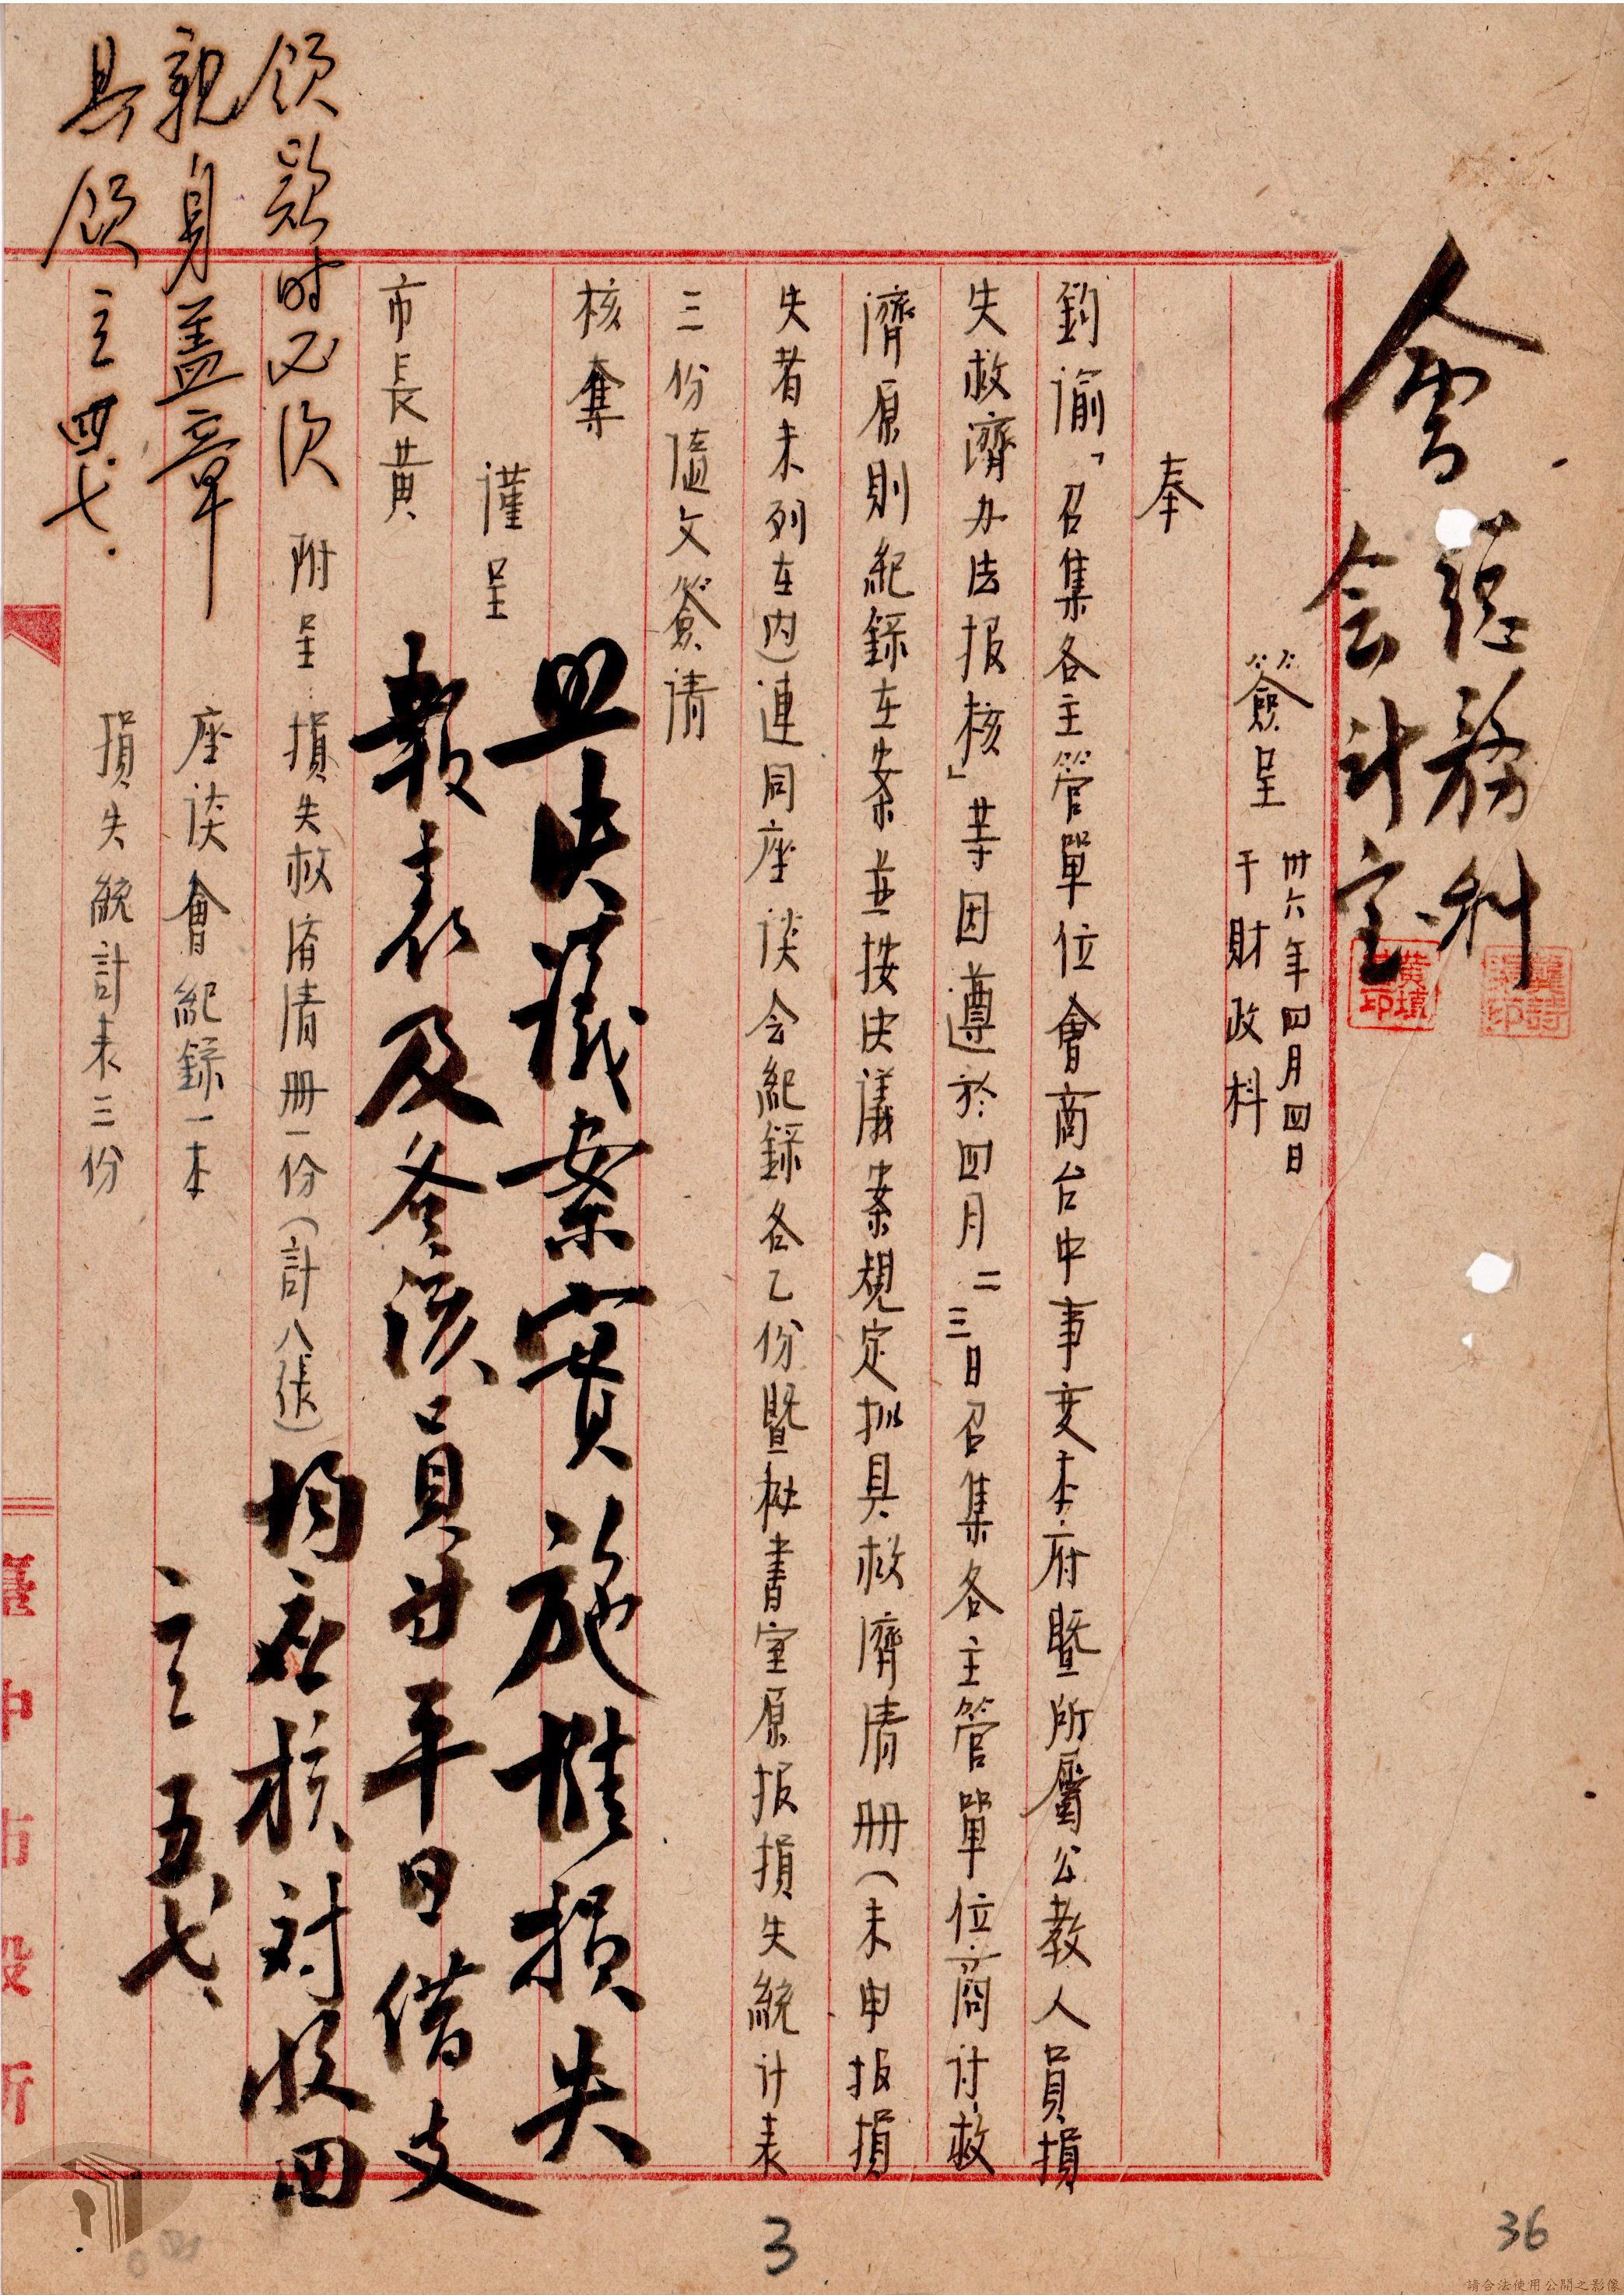 會
總務科
会计室
簽呈
卅六年四月四日
于財政科
奉
鈞諭「召集各主管單位會商台中事变本府暨所屬公教人員損
失救濟办法报核」等因遵於四月二三日召集各主管單位商讨救
濟原則紀録在案並按决議案規定拟具救濟清册(未申报損
失者未列在内)連同座谈会紀録各乙份暨秘書室原报損失統计表
三份隨文簽请
核奪
謹呈
市長黄
附呈 損失救濟清册一份(計八張)
座谈會紀録一本
損失統計表三份
照决議案實施惟損失
報表及各該員廿平日借支
均应核对收回
二五七
领款时必須
親身蓋章
具领
四七
臺中市役所
3
36
請合法使用公開之影像